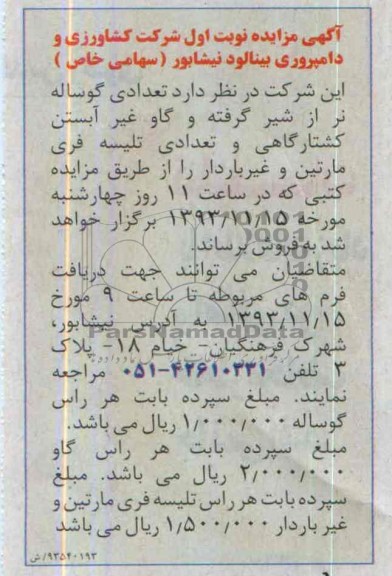 آگهی مزایده نوبت اول شرکت کشاورزی و
دامپروری بینالود نیشابور (سهامی خاص)
این شرکت در نظر دارد تعدادی گوساله
نر از شیر گرفته و گاو غیر آبستن
کشتارگاهی و تعدادی تلیسه فری
مارتین و غیرباردار را از طریق مزایده
کتبی که در ساعت ۱۱ روز چهارشنبه
مورخه ۱۳۹۳/۱۱/۱۵ برگزار خواهد
شد به فروش برساند.
متقاضیان می توانند جهت دریافت
فرم های مربوطه تا ساعت ۹ مورخ
۱۳۹۳/۱۱/۱۵ به آدرس نیشابور،
شهرک فرهنگیان- خیام ۱۸- پلاک
۳ تلفن ۴۲۶۱۰۳۳۱-۰۵۱ مراجعه
نمایند. مبلغ سپرده بابت هر راس
گوساله ۱/۰۰۰/۰۰۰ ریال می باشد.
مبلغ سپرده بابت هر راس گاو
۲/۰۰۰/۰۰۰ ریال می باشد. مبلغ
سپرده بابت هر راس تلیسه فری مارتین و
غیر باردار ۱/۵۰۰/۰۰۰ ریال می باشد
۹۳۵۴۰۱۹۳/ش
ParsNamadData